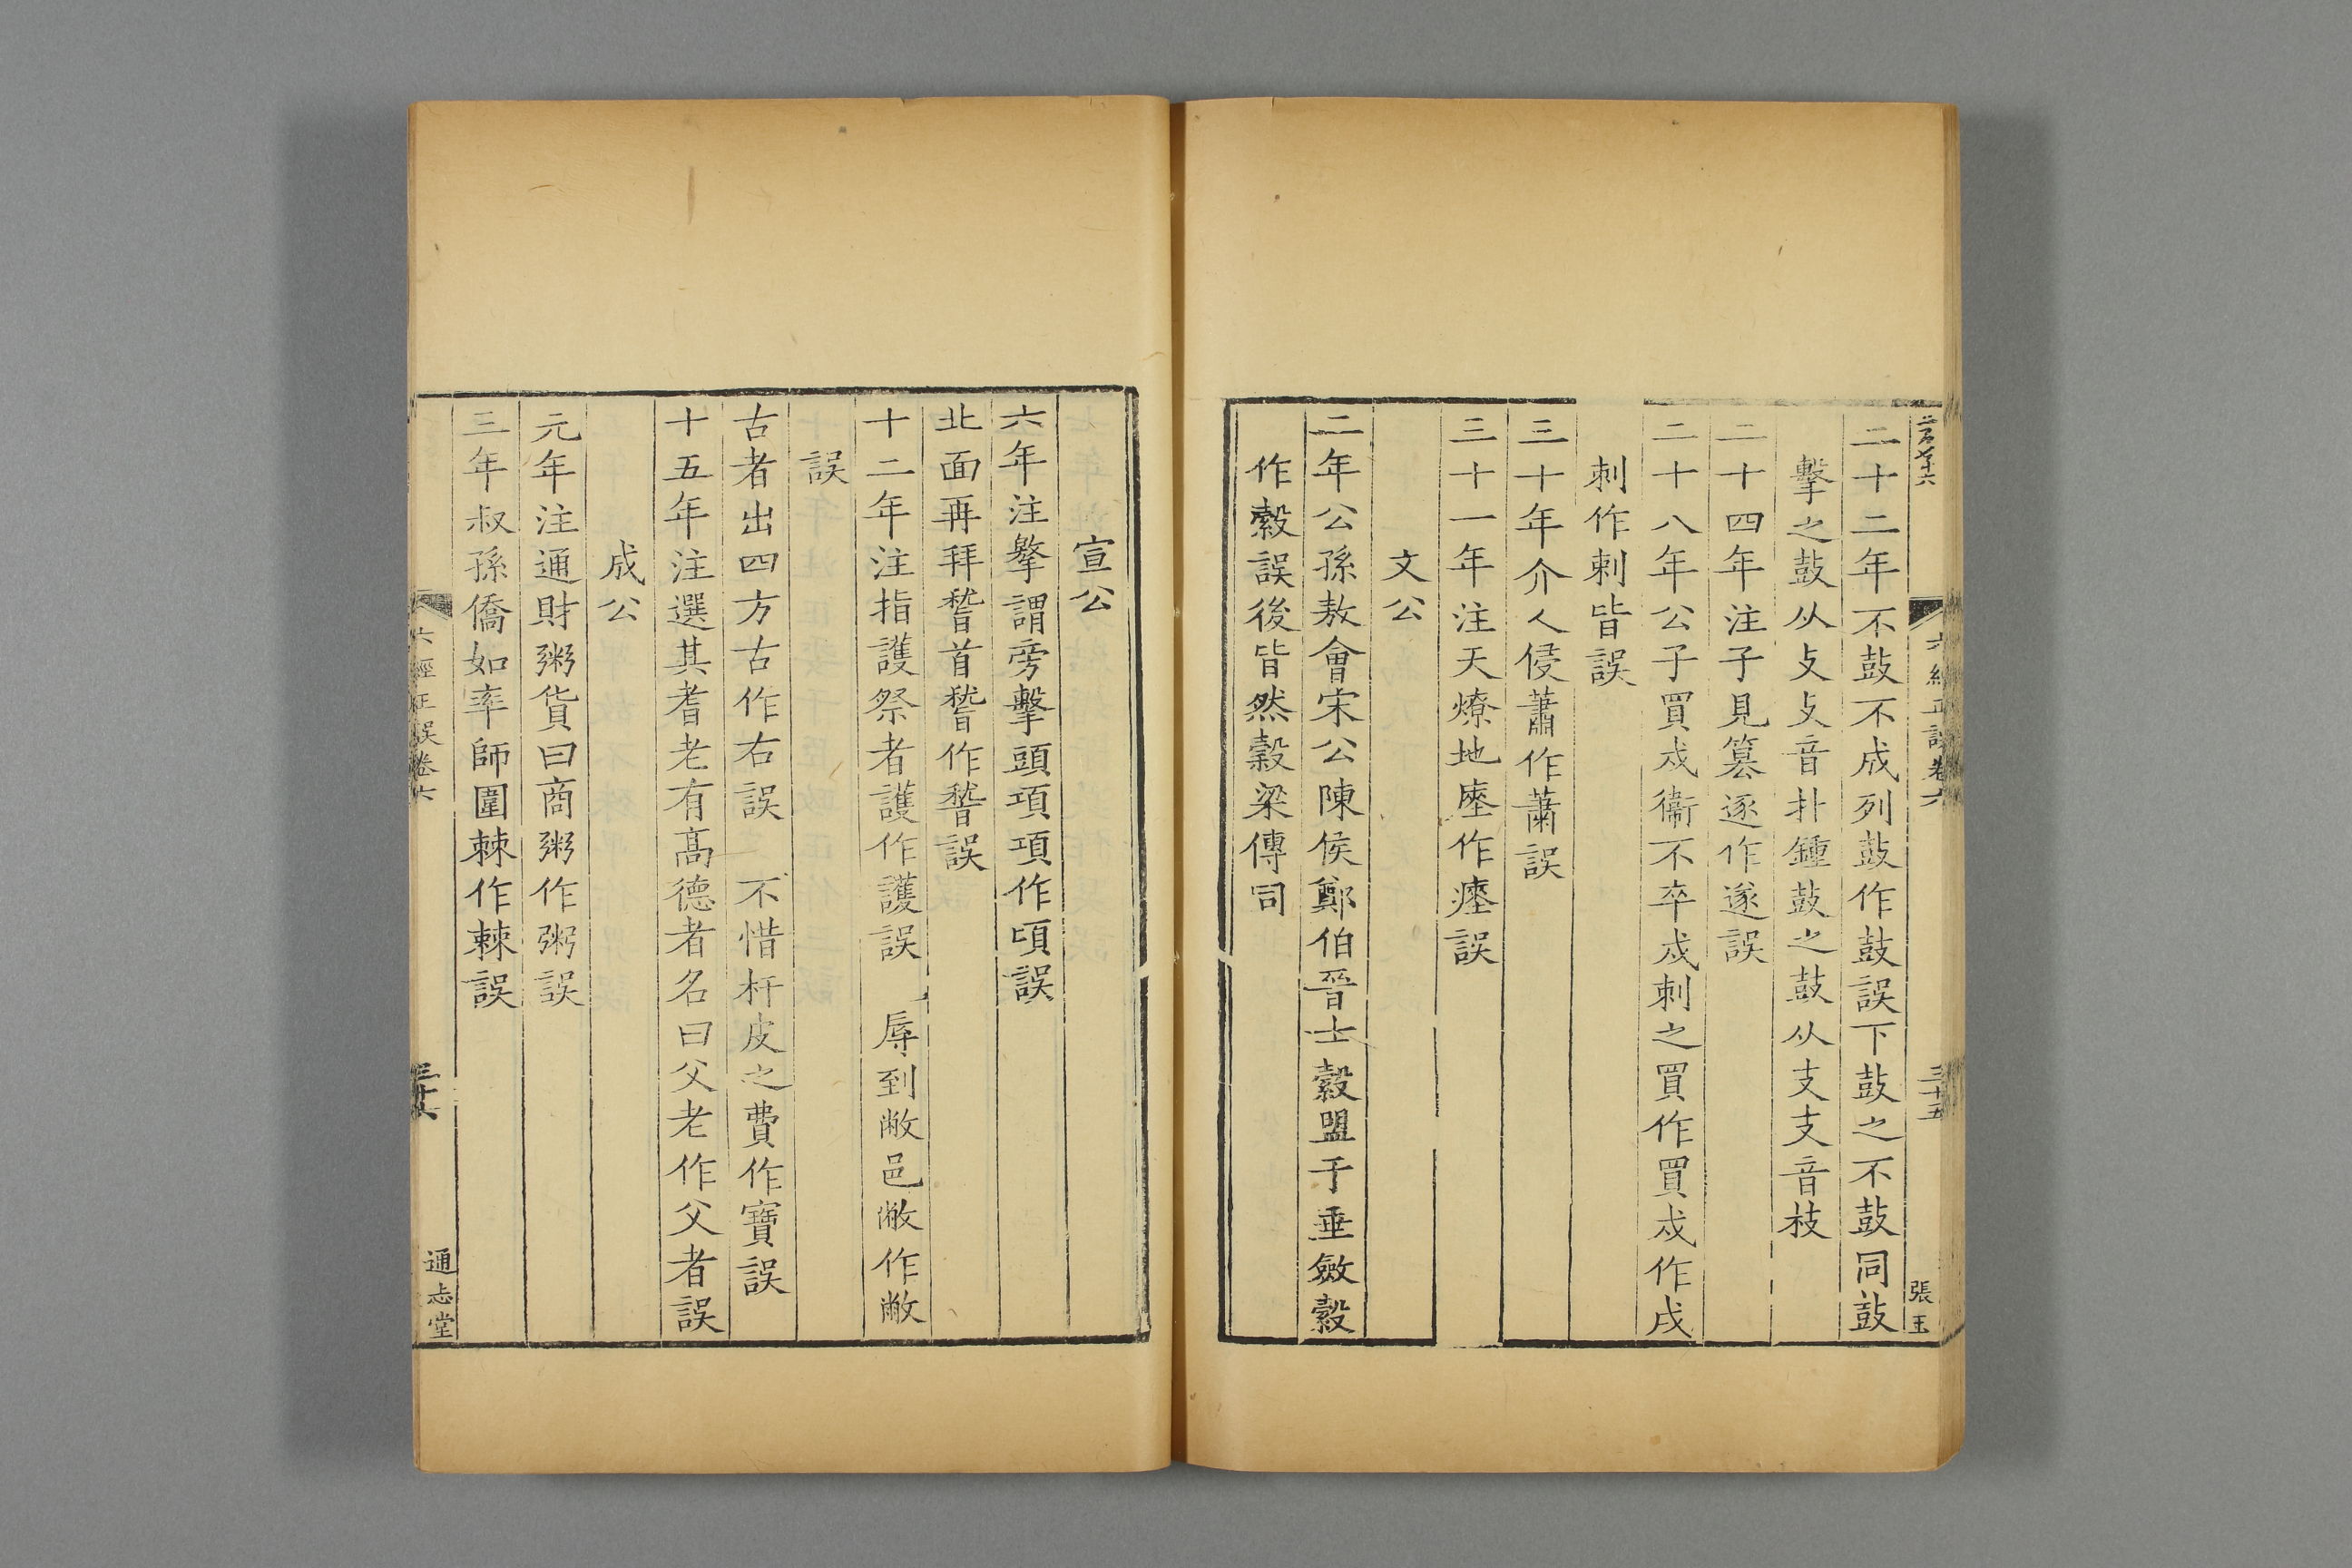 六經正誤卷六
三十五
張玉
二十二年不鼓不成列鼓作鼔誤下鼓之不鼓同鼓
擊之鼓从攴攴音扑鍾鼓之鼓从支支音枝
二十四年注子見簒逐作遂誤
二十八年公子買戍衞不卒戍刺之買作買戍作戌
刺作剌皆誤
三十年介人侵蕭作蕭誤
三十一年注天燎地瘞作瘞誤
文公
二年公孫敖會宋公陳侯鄭伯晉士縠盟于垂斂縠
作縠誤後皆然穀梁傳同
宣公
六年注摮謂旁擊頭項項作頃誤
北面再拜稽首稽作稽誤
十二年注指護祭者護作護誤 辱到敝邑敝作敝
誤
古者出四方古作右誤 不惜杅皮之費作寶誤
十五年注選其耆老有高德者名曰父老作父者誤
成公
元年注通財粥貨曰商粥作粥誤
三年叔孫僑如率師圍棘作棘誤
六經正誤卷六
三十六
通志堂